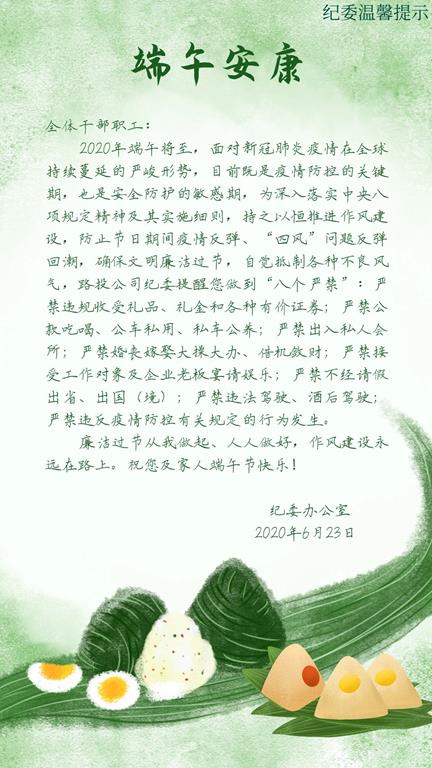 纪委温馨提示
端午安康
全体干部职工：
2020年端午将至，面对新冠肺炎疫情在全球
持续蔓延的严峻形势，目前既是疫情防控的关键
期，也是安全防护的敏感期，为深入落实中央八
项规定精神及其实施细则，持之以恒推进作风建
设，防止节日期间疫情反弹、“四风”问题反弹
回潮，确保文明廉洁过节，自觉抵制各种不良风
气，路投公司纪委提醒您做到“八个严禁”：严
禁违规收受礼品、礼金和各种有价证券；严禁公
款吃喝、公车私用、私车公养；严禁出入私人会
所；严禁婚丧嫁娶大操大办、借机敛财；严禁接
受工作对象及企业老板宴请娱乐；严禁不经请假
出省、出国（境）；严禁违法驾驶、酒后驾驶；
严禁违反疫情防控有关规定的行为发生。
廉洁过节从我做起、人人做好，作风建设永
远在路上。祝您及家人端午节快乐！
纪委办公室
2020年6月23日